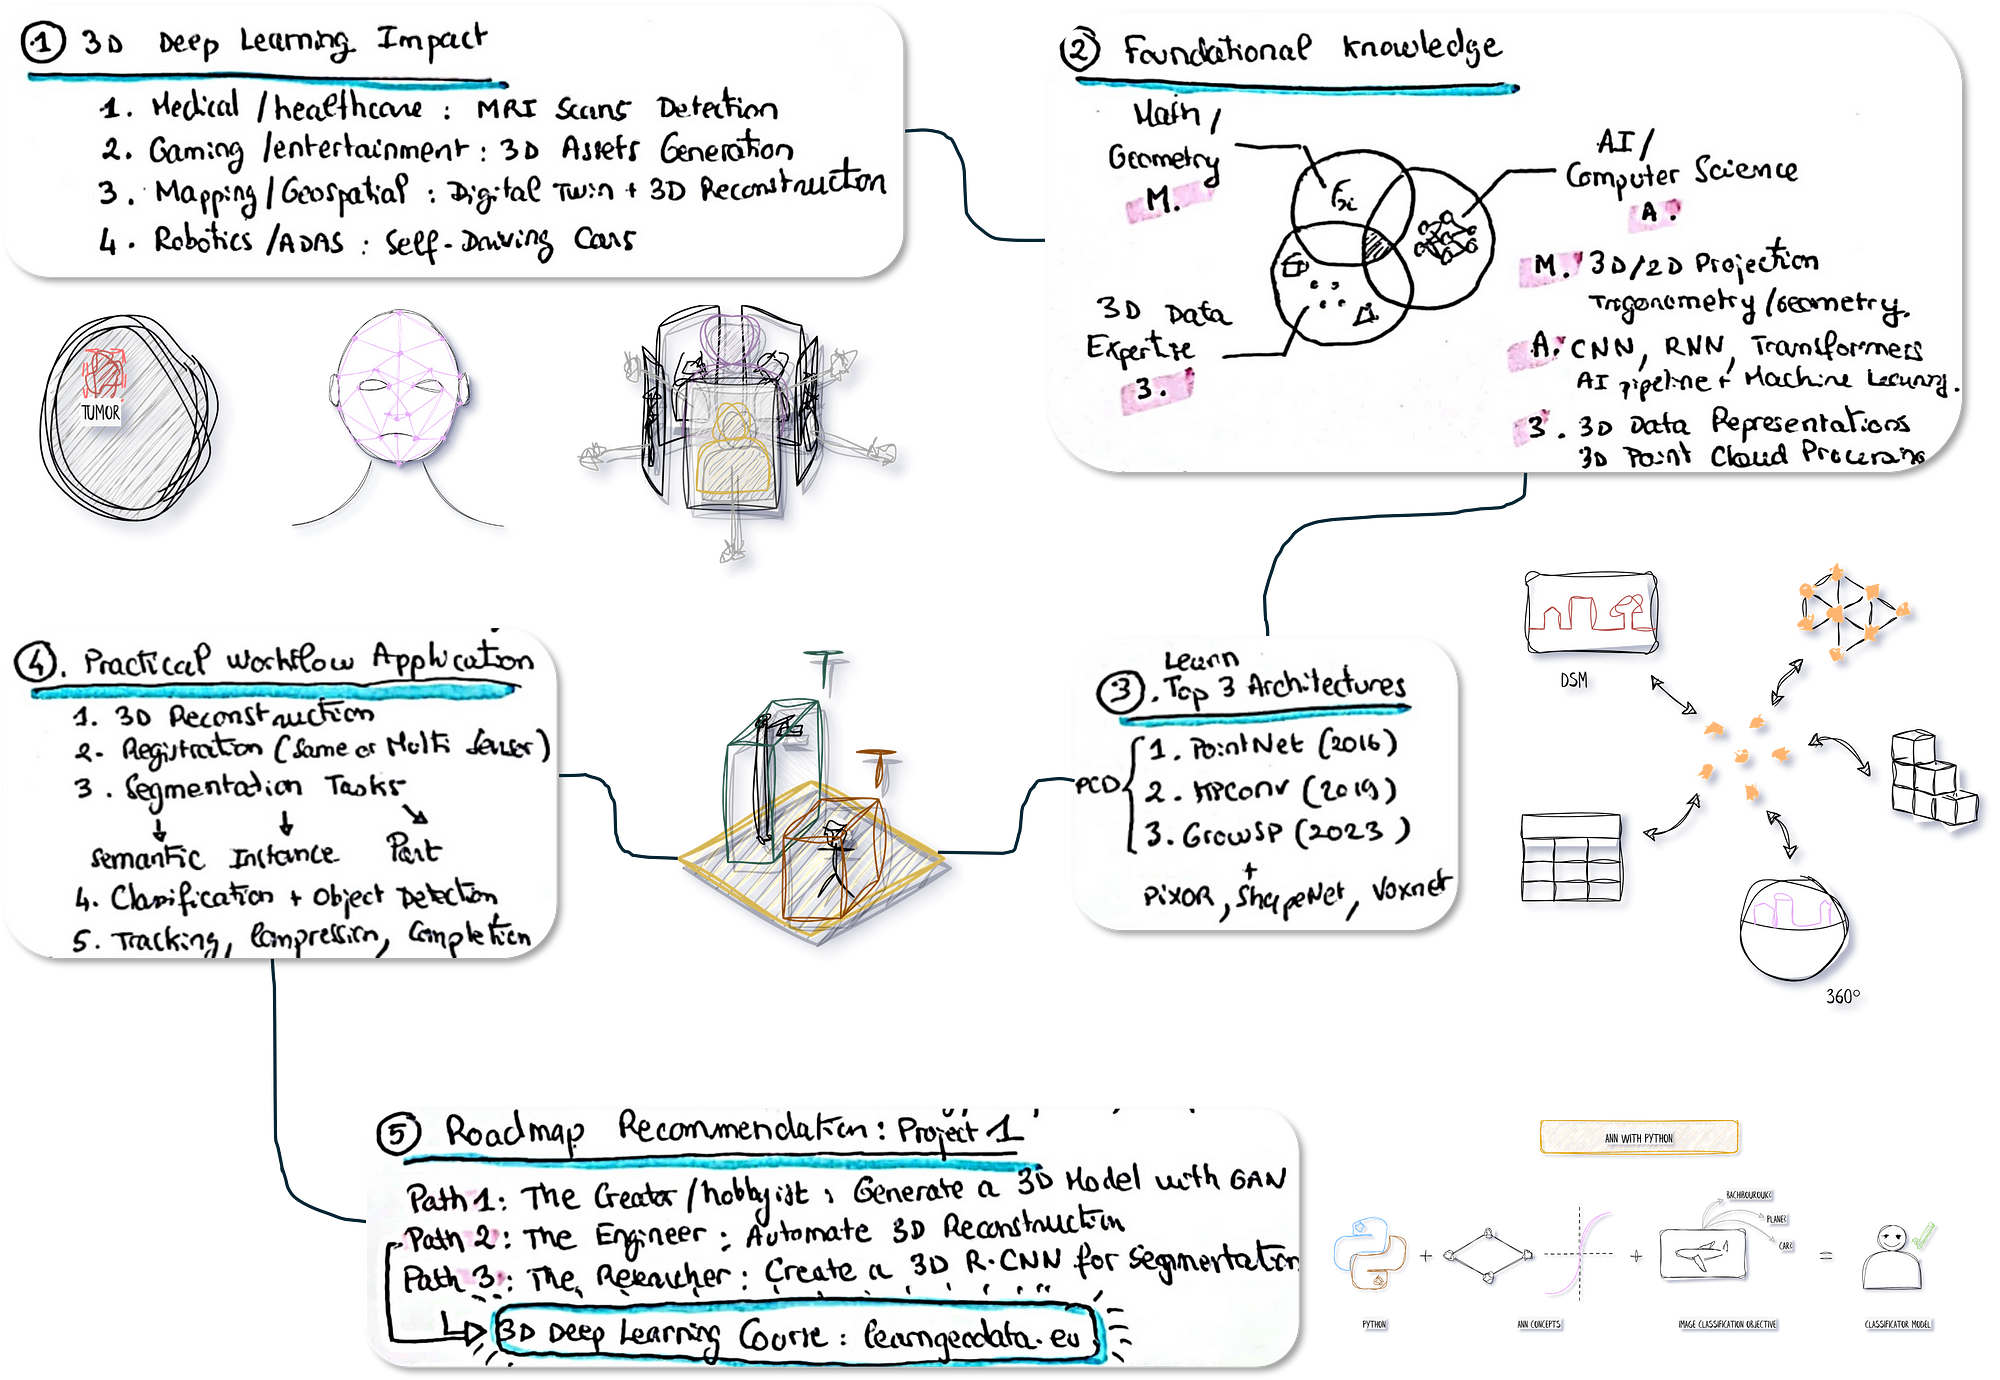 1 3D Deep Learning Impact
1. Medical/healthcare: MRI Scans Detection
2. Gaming/entertainment: 3D Assets Generation
3. Mapping/Geospatial: Digital Twin + 3D Reconstruction
4. Robotics/ADAS: Self-Driving Cars
TUMOR
2 Foundational Knowledge
Math/
Geometry
M.
AI/
Computer Science
A.
3D Data
Expertise
3.
M. 3D/2D Projection
Trigonometry/Geometry.
A. CNN, RNN, Transformers
AI pipeline + Machine Learning.
3. 3D Data Representations
3D Point Cloud Processing
3. Learn
Top 3 Architectures
PCD
1. PointNet (2016)
2. KPConv (2019)
3. GrowSP (2023)
+
PIXOR, ShapeNet, Voxnet
DSM
360°
4. Practical Workflow Application
1. 3D Reconstruction
2. Registration (Same or Multi Sensor)
3. Segmentation Tasks
Semantic Instance Part
4. Classification + Object Detection
5. Tracking, Compression, Completion
5 Roadmap Recommendation: Project 1
Path 1: The Creator/hobbyist: Generate a 3D Model with GAN
Path 2: The Engineer: Automate 3D Reconstruction
Path 3: The Researcher: Create a 3D R-CNN for Segmentation
3D Deep Learning Course: learngeodata.eu
ANN WITH PYTHON
PLANE
CAR
+
+
=
PYTHON
ANN CONCEPTS
IMAGE CLASSIFICATION OBJECTIVE
CLASSIFICATOR MODEL